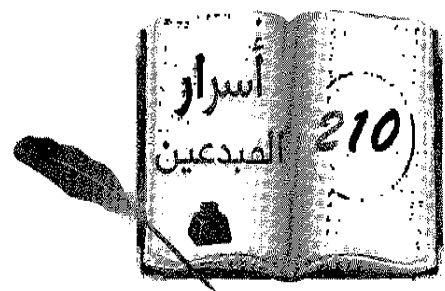 أسرار
المبدعين
210